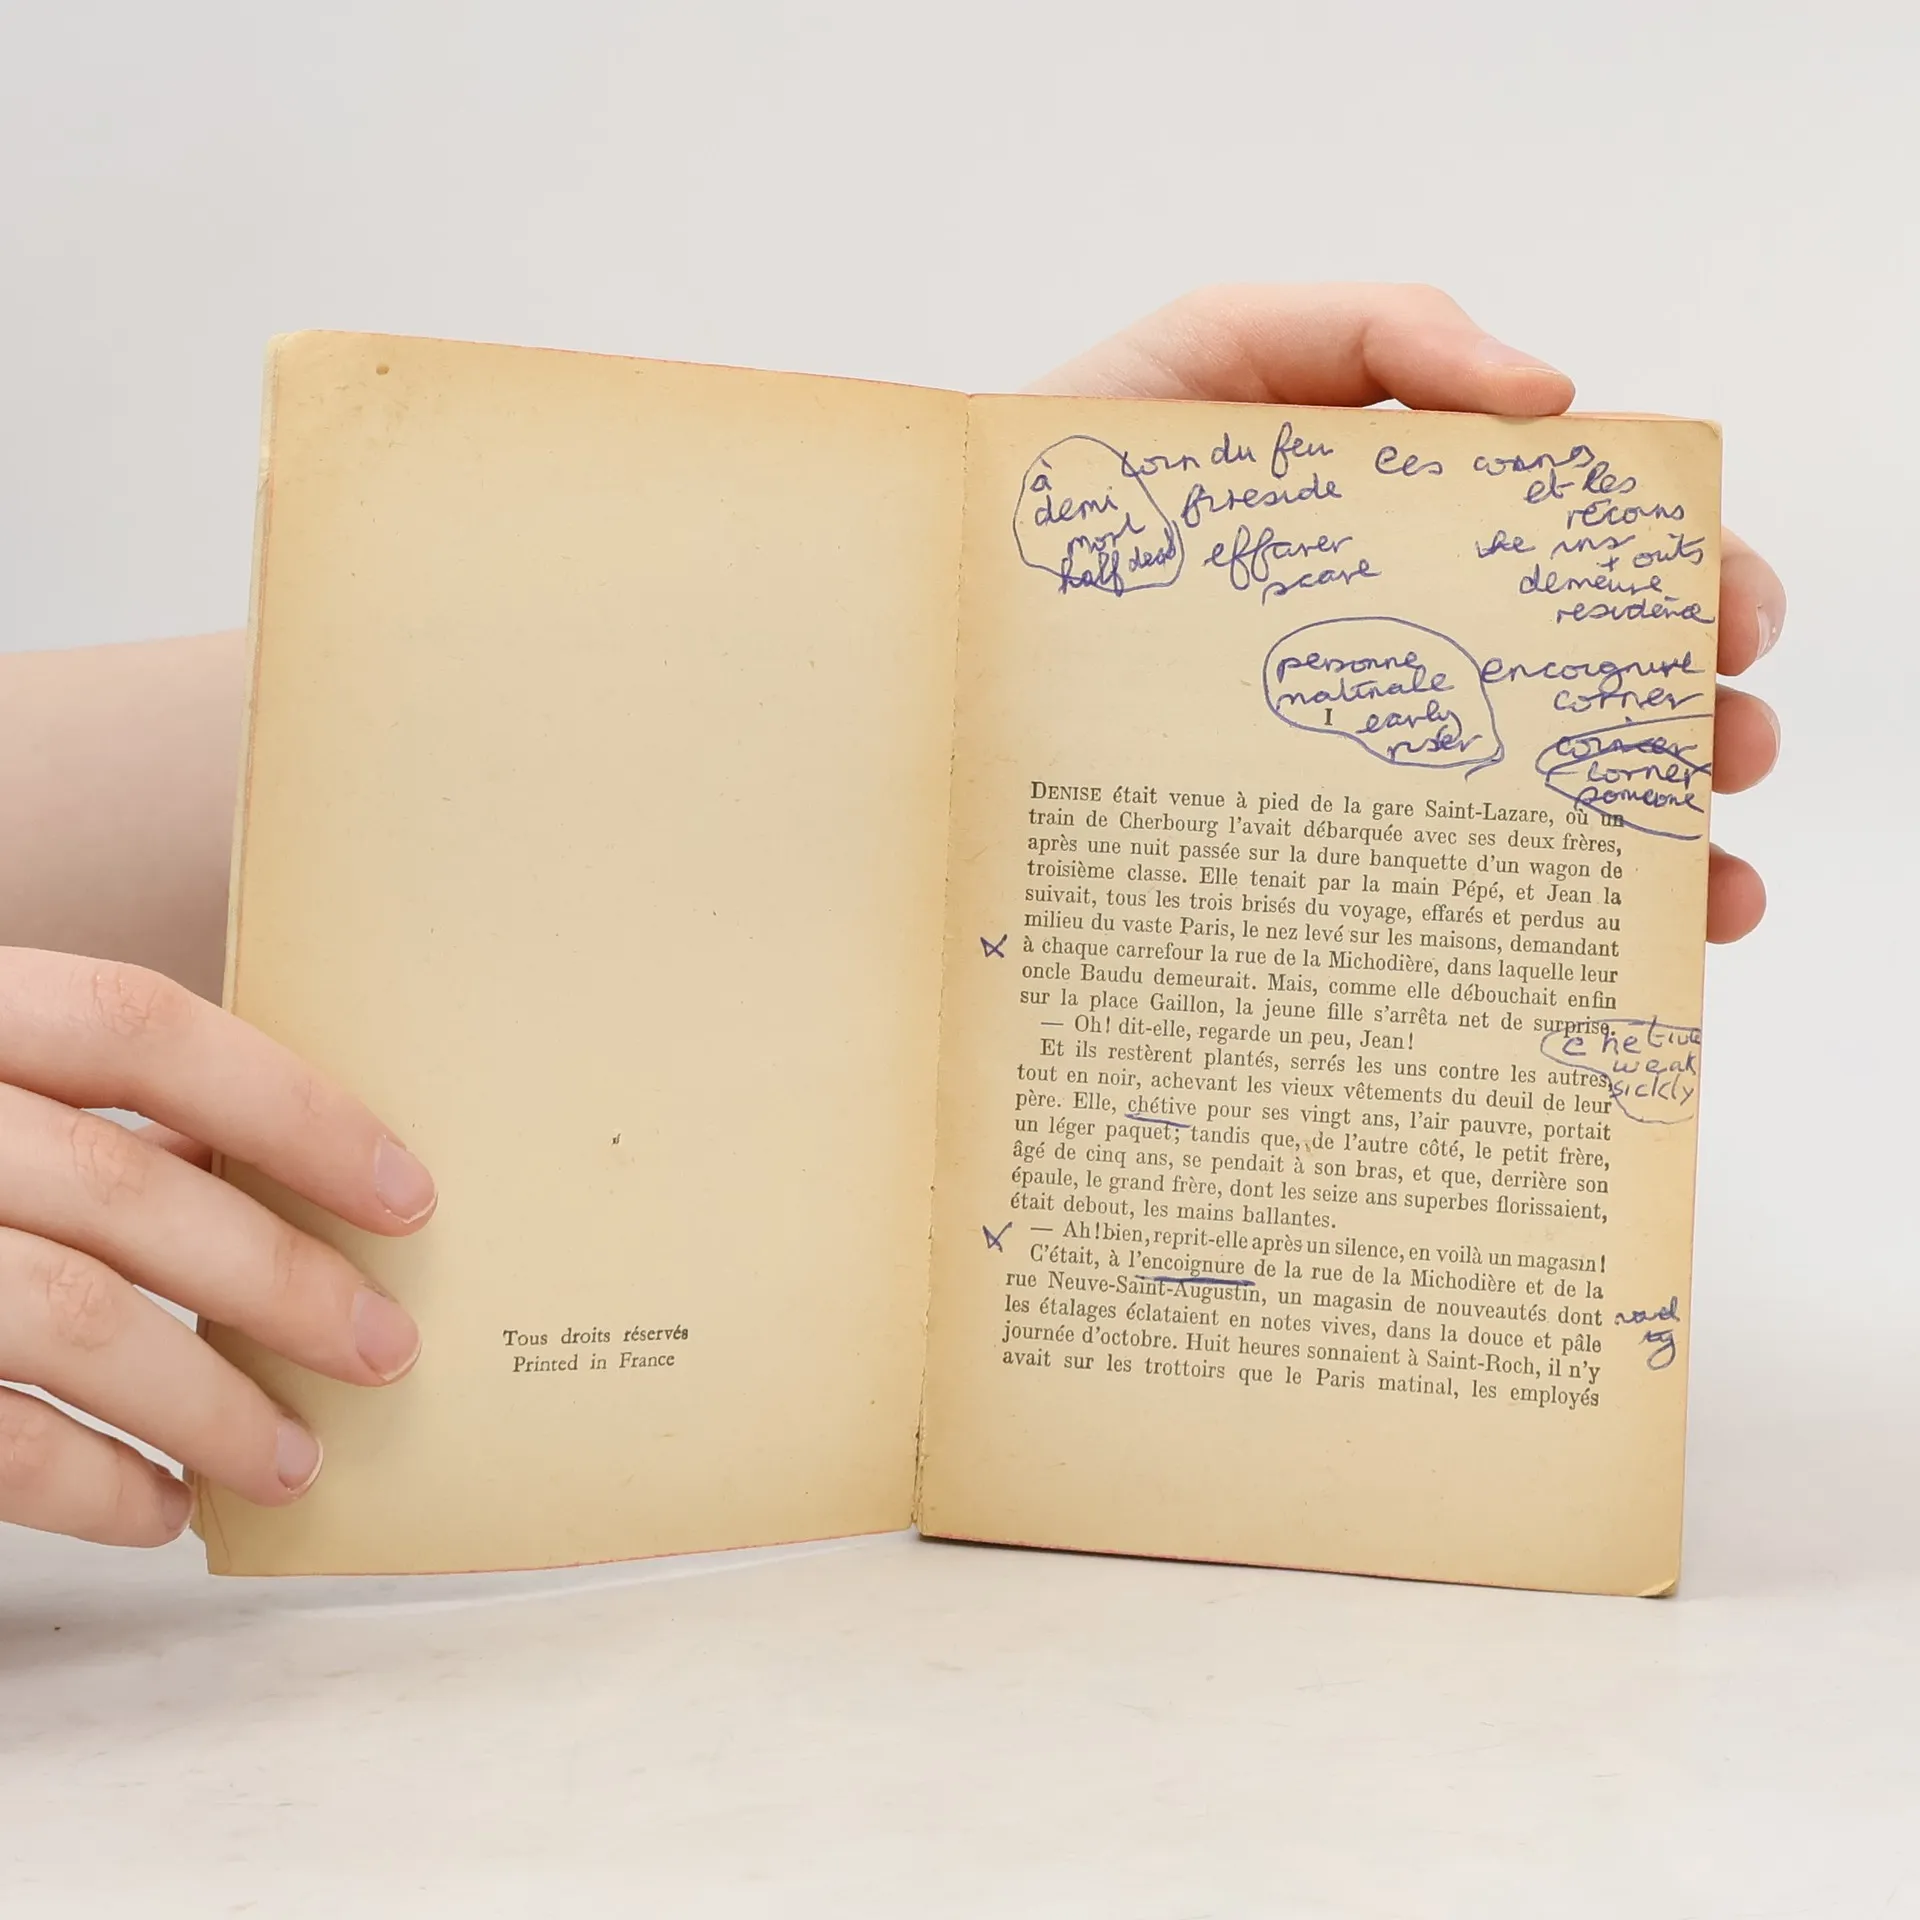 Tous droits réservés
Printed in France
à
demi
mort
half dead
coin du feu
fireside
effarer
scare
les coins
et les
recoins
the ins
+ outs
demeure
residence
personne
matinale
early
riser
encoignure
corner
corner
someone
I
DENISE était venue à pied de la gare Saint-Lazare, où un
train de Cherbourg l'avait débarquée avec ses deux frères,
après une nuit passée sur la dure banquette d'un wagon de
troisième classe. Elle tenait par la main Pépé, et Jean la
suivait, tous les trois brisés du voyage, effarés et perdus au
milieu du vaste Paris, le nez levé sur les maisons, demandant
à chaque carrefour la rue de la Michodière, dans laquelle leur
oncle Baudu demeurait. Mais, comme elle débouchait enfin
sur la place Gaillon, la jeune fille s'arrêta net de surprise.
— Oh! dit-elle, regarde un peu, Jean!
Et ils restèrent plantés, serrés les uns contre les autres,
tout en noir, achevant les vieux vêtements du deuil de leur
père. Elle, chétive pour ses vingt ans, l'air pauvre, portait
un léger paquet; tandis que, de l'autre côté, le petit frère,
âgé de cinq ans, se pendait à son bras, et que, derrière son
épaule, le grand frère, dont les seize ans superbes florissaient,
était debout, les mains ballantes.
— Ah! bien, reprit-elle après un silence, en voilà un magasin!
C'était, à l'encoignure de la rue de la Michodière et de la
rue Neuve-Saint-Augustin, un magasin de nouveautés dont
les étalages éclataient en notes vives, dans la douce et pâle
journée d'octobre. Huit heures sonnaient à Saint-Roch, il n'y
avait sur les trottoirs que le Paris matinal, les employés
chetive
weak
sickly
novel
ty